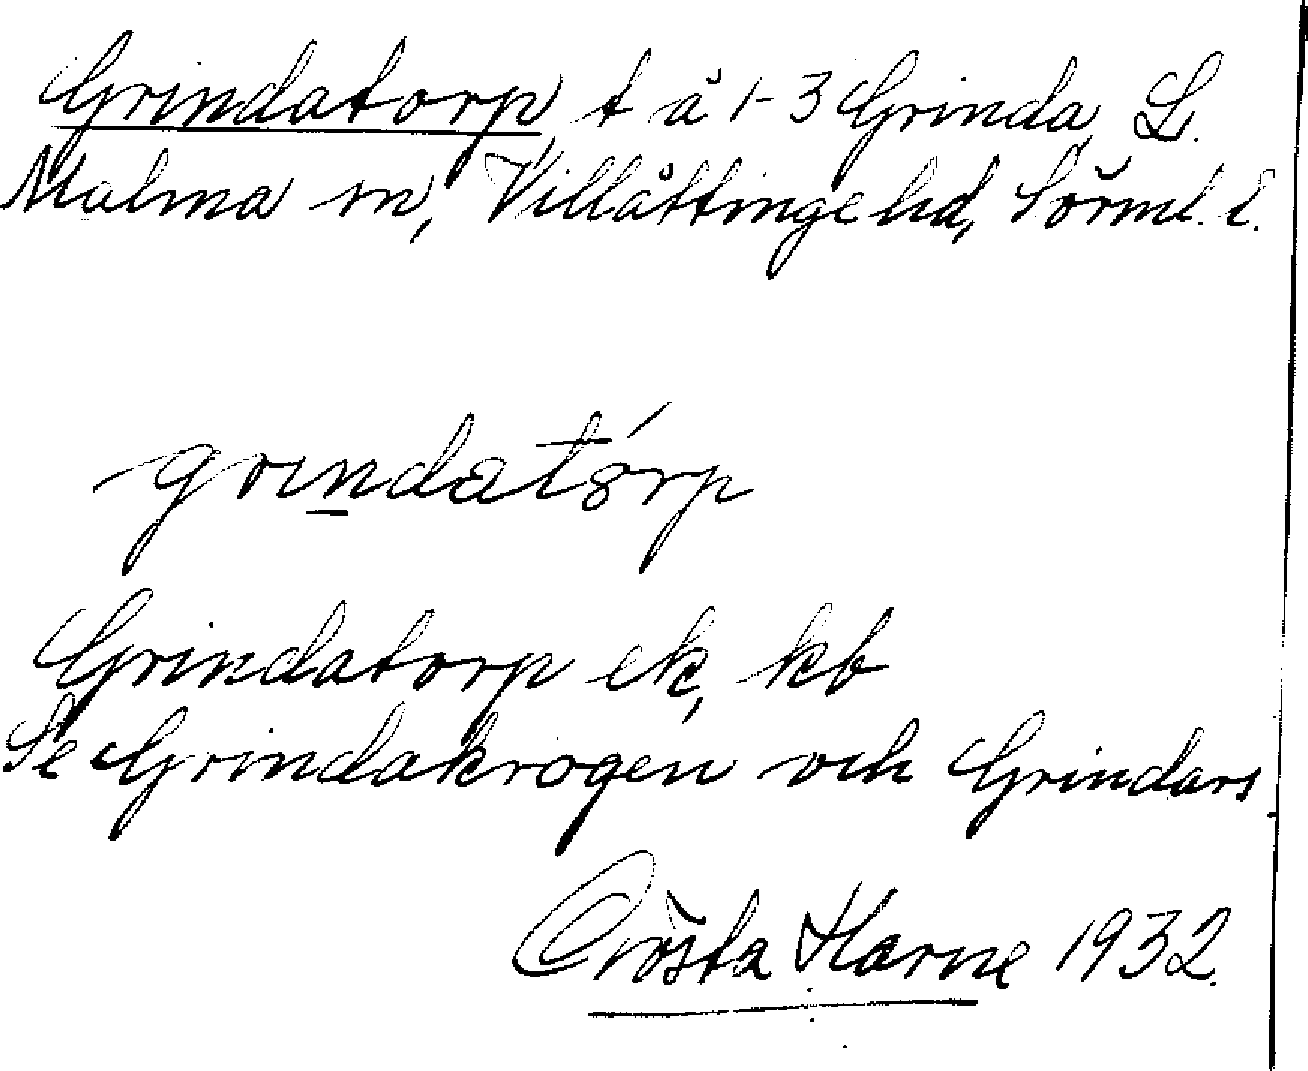 Grindatorp t å 1-3 Grinda, L.
Malma sn, Villåttinge hd, Sörml. l.
grindatórp
Grindatorp ek, kb
Se Grindakrogen och Grindars
Gösta Harne 1932.